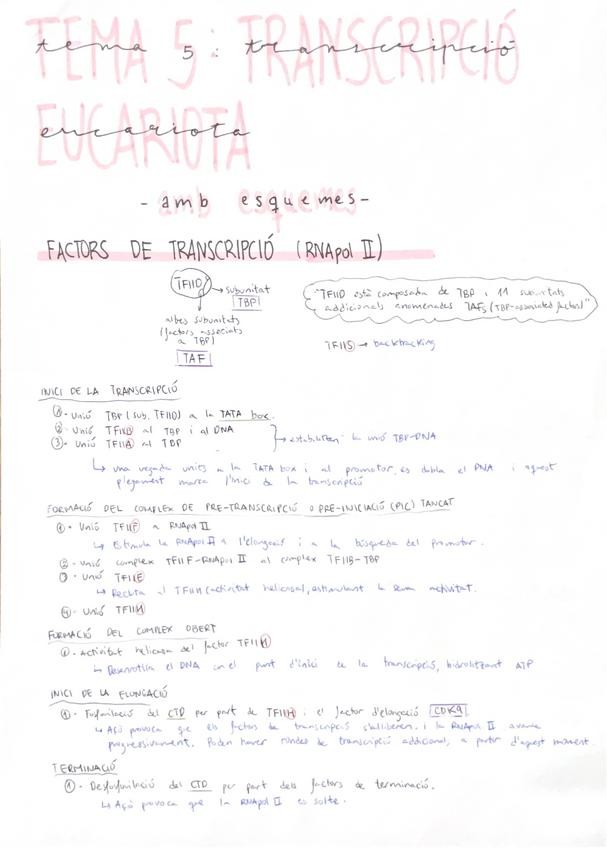 TEMA 5: TRANSCRIPCIÓ
tema 5: transcripció
EUCARIOTA
eucariota
- amb esquemes -
FACTORS DE TRANSCRIPCIÓ (RNApol II)
TFIID → subunitat
TBP
altres subunitats
(factors associats
a TBP)
TAF
"TFIID està composada de TBP i 11 subunitats
addicionals anomenades TAFs (TBP-associated factors)"
TFIIS → backtracking
INICI DE LA TRANSCRIPCIÓ
①- Unió TBP (sub. TFIID) a la TATA box.
②- Unió TFIIB al TBP i al DNA
③- Unió TFIIA al TBP
→ estabilitzen la unió TBP-DNA
↳ una vegada units a la TATA box i al promotor, es dobla el DNA i aquest
plegament marca l'inici de la transcripció
FORMACIÓ DEL COMPLEX DE PRE-TRANSCRIPCIÓ O PRE-INICIACIÓ (PIC) TANCAT
①- Unió TFIIF a RNApol II
↳ Estimula la RNApol II a l'elongació i a la búsqueda del promotor.
②- Unió complex TFIIF-RNApol II al complex TFIIB-TBP
③- Unió TFIIE
↳ Recluta al TFIIH (activitat helicasa), estimulant la seua activitat.
④- Unió TFIIH
FORMACIÓ DEL COMPLEX OBERT
①- Activitat helicasa del factor TFIIH
↳ Desenrotlla el DNA en el punt d'inici de la transcripció, hidrolitzant ATP
INICI DE LA ELONGACIÓ
①- Fosforilació del CTD per part de TFIIH i el factor d'elongació CDK9
↳ Açò provoca que els factors de transcripció s'alliberen i la RNApol II avance
progressivament. Poden haver rondes de transcripció addicional, a partir d'aquest moment.
TERMINACIÓ
①- Desfosforilació del CTD per part dels factors de terminació.
↳ Açò provoca que la RNApol II es solte.